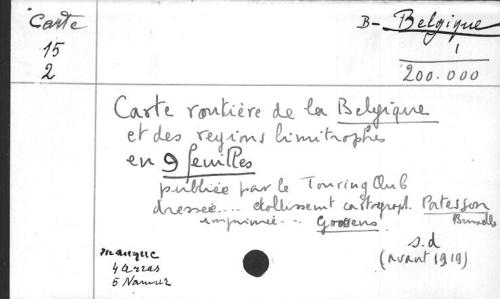 Carte
15
2
B- Belgique
1
200.000
Carte routière de la Belgique
et des regions limitrophes
en 9 feuilles
publiée par le Touring Club
dressée.... établissement cartograph. Patesson
Bruxelles
imprimée... Goosens
s.d
(avant 1919)
manque
4 Arras
5 Namur